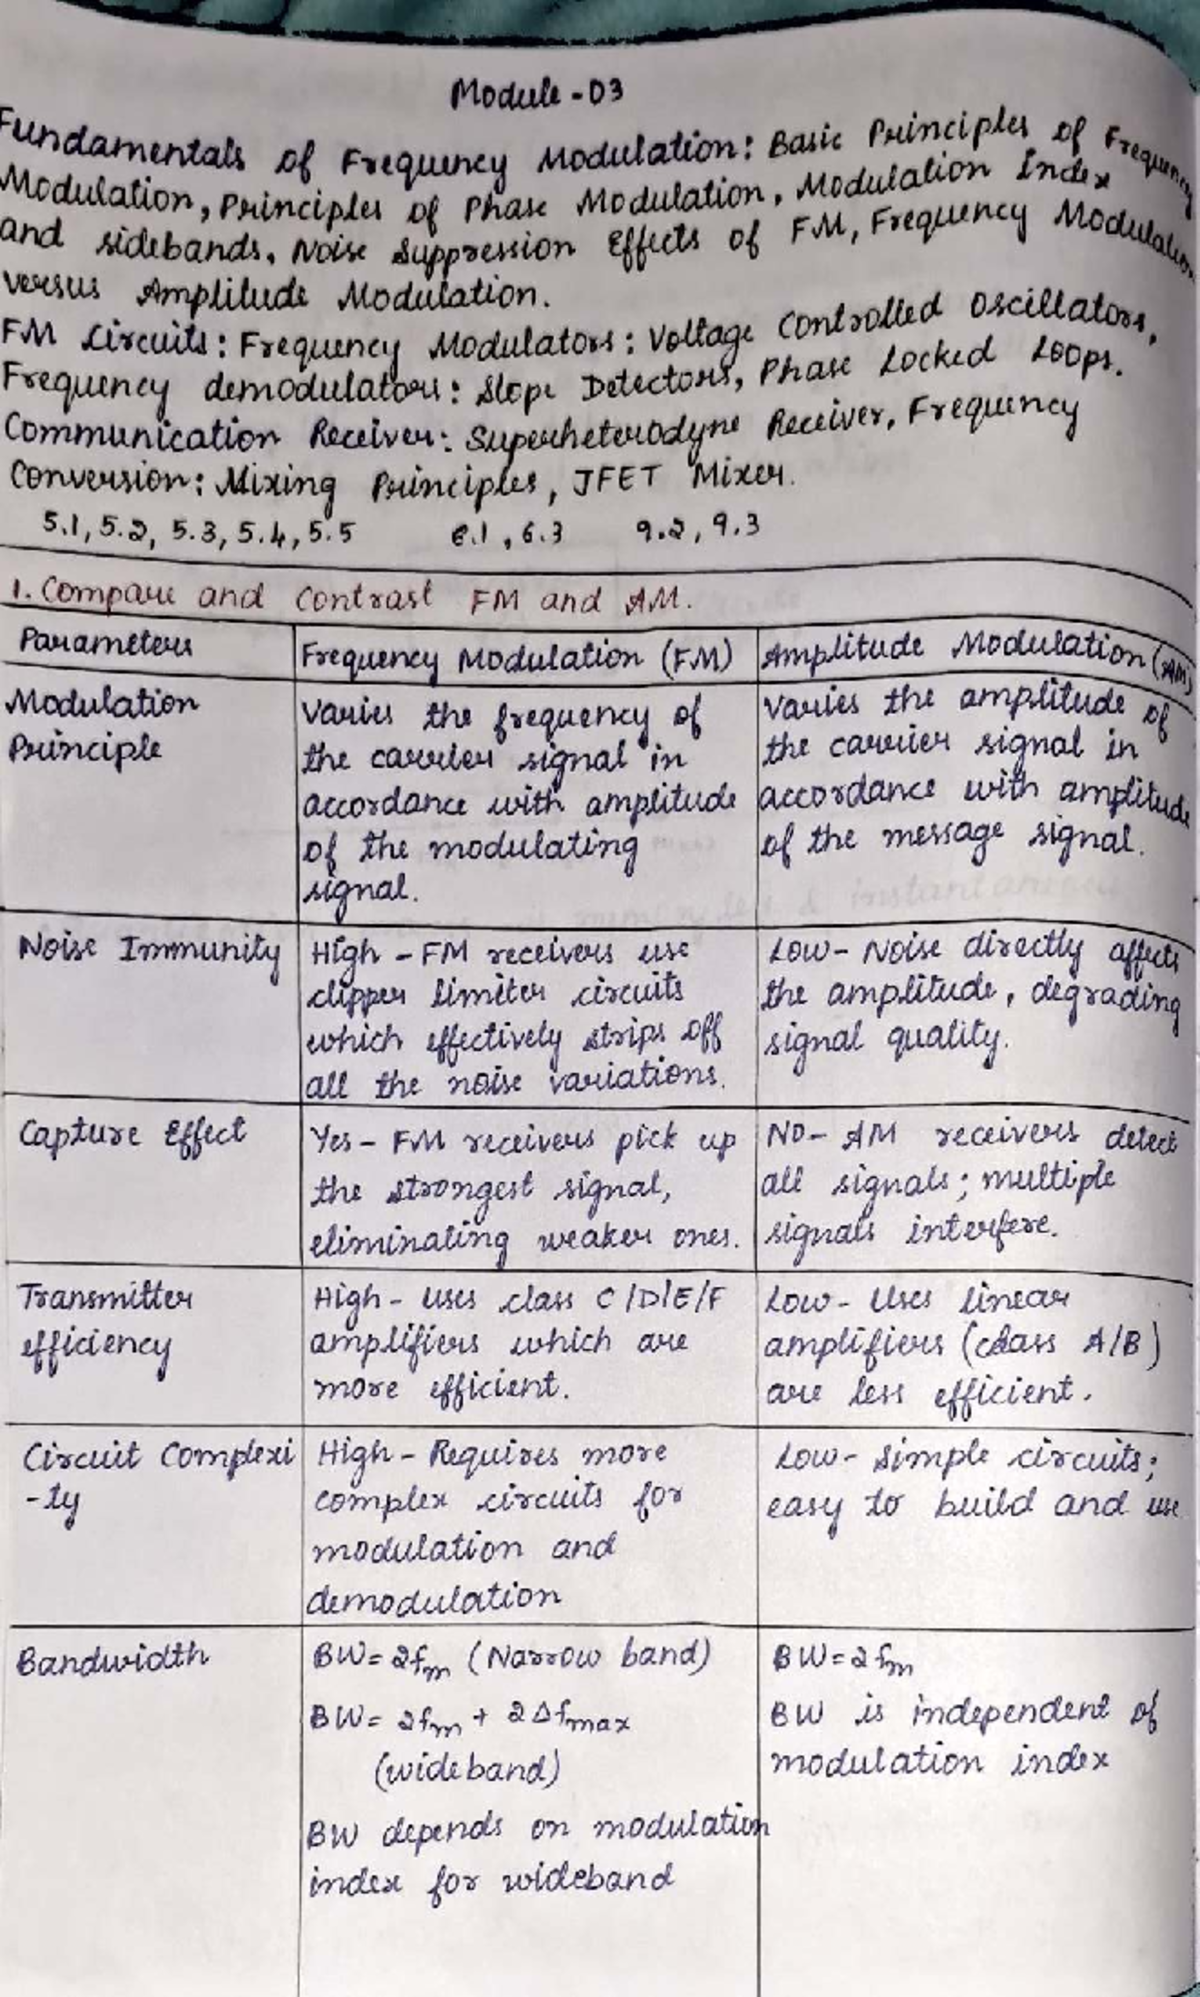 Module-03
Fundamentals of Frequency Modulation: Basic Principles of Frequency
Modulation, Principles of Phase Modulation, Modulation Index
and sidebands, Noise Suppression Effects of FM, Frequency Modulation
versus Amplitude Modulation.
FM Circuits: Frequency Modulators: Voltage Controlled Oscillators,
Frequency demodulators: Slope Detectors, Phase Locked Loops.
Communication Receiver: Superheterodyne Receiver, Frequency
Conversion: Mixing Principles, JFET Mixer.
5.1, 5.2, 5.3, 5.4, 5.5 6.1, 6.3 9.2, 9.3
1. Compare and Contrast FM and AM.
Parameters
Frequency Modulation (FM)
Amplitude Modulation (AM)
Modulation
Principle
Varies the frequency of
the carrier signal in
accordance with amplitude
of the modulating
signal.
Varies the amplitude of
the carrier signal in
accordance with amplitude
of the message signal.
Noise Immunity
High - FM receivers use
clipper limiter circuits
which effectively strips off
all the noise variations.
Low- Noise directly affects
the amplitude, degrading
signal quality.
Capture Effect
Yes- FM receivers pick up
the strongest signal,
eliminating weaker ones.
NO- AM receivers detect
all signals; multiple
signals interfere.
Transmitter
efficiency
High- uses class C/D/E/F
amplifiers which are
more efficient.
Low- Uses linear
amplifiers (class A/B)
are less efficient.
Circuit Complexi
-ty
High- Requires more
complex circuits for
modulation and
demodulation
Low- Simple circuits;
easy to build and use
Bandwidth
BW= 2fm (Narrow band)
BW= 2fm + 2Δfmax
(wideband)
BW depends on modulation
index for wideband
BW=2fm
BW is independent of
modulation index